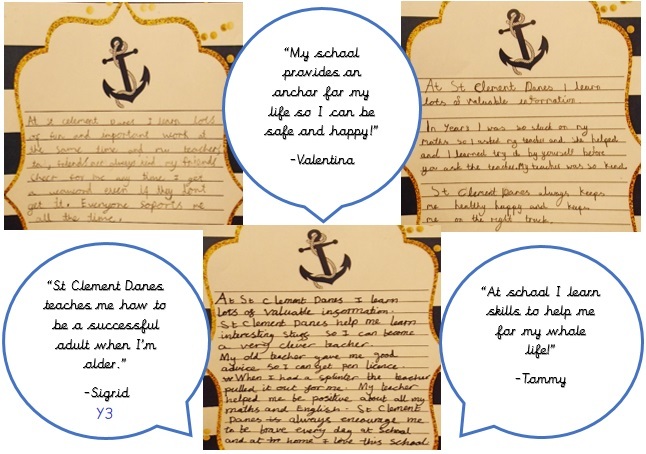 At St Clement Danes I learn lots
of fun and important work at
the same time and my teachers
say, friends not always kind my friends
cheer for me any time I get
a reaward even if they dont
get it. Everyone soports me
all the time.
“My school
provides an
anchor for my
life so I can be
safe and happy!”
-Valentina
At St Clement Danes I learn
lots of valuable information
In Year 1 I was so stuck on my
maths so I asked my teacher and she helped
and I learned try it by yourself before
you ask the teacher. My teacher was so kind.
St Clement Danes always keeps
me healthy happy and keeps
me on the right track.
“St Clement Danes
teaches me how to
be a successful
adult when I’m
older.”
-Sigrid
Y3
At St Clement Danes I learn
lots of valuable insormation.
St Clement Danes help me learn
interesting stugg so I can became
a very clever teacher.
My old teacher gave me good
advice so I can get pen licence
When I had a splinter the teacher
pulled it out for me. My teacher
helped me be positive about all my
maths and English. St Clement
Danes is always encourage me
to be brave every day at school
and at home I love this school
“At school I learn
skills to help me
for my whole
life!”
-Tammy